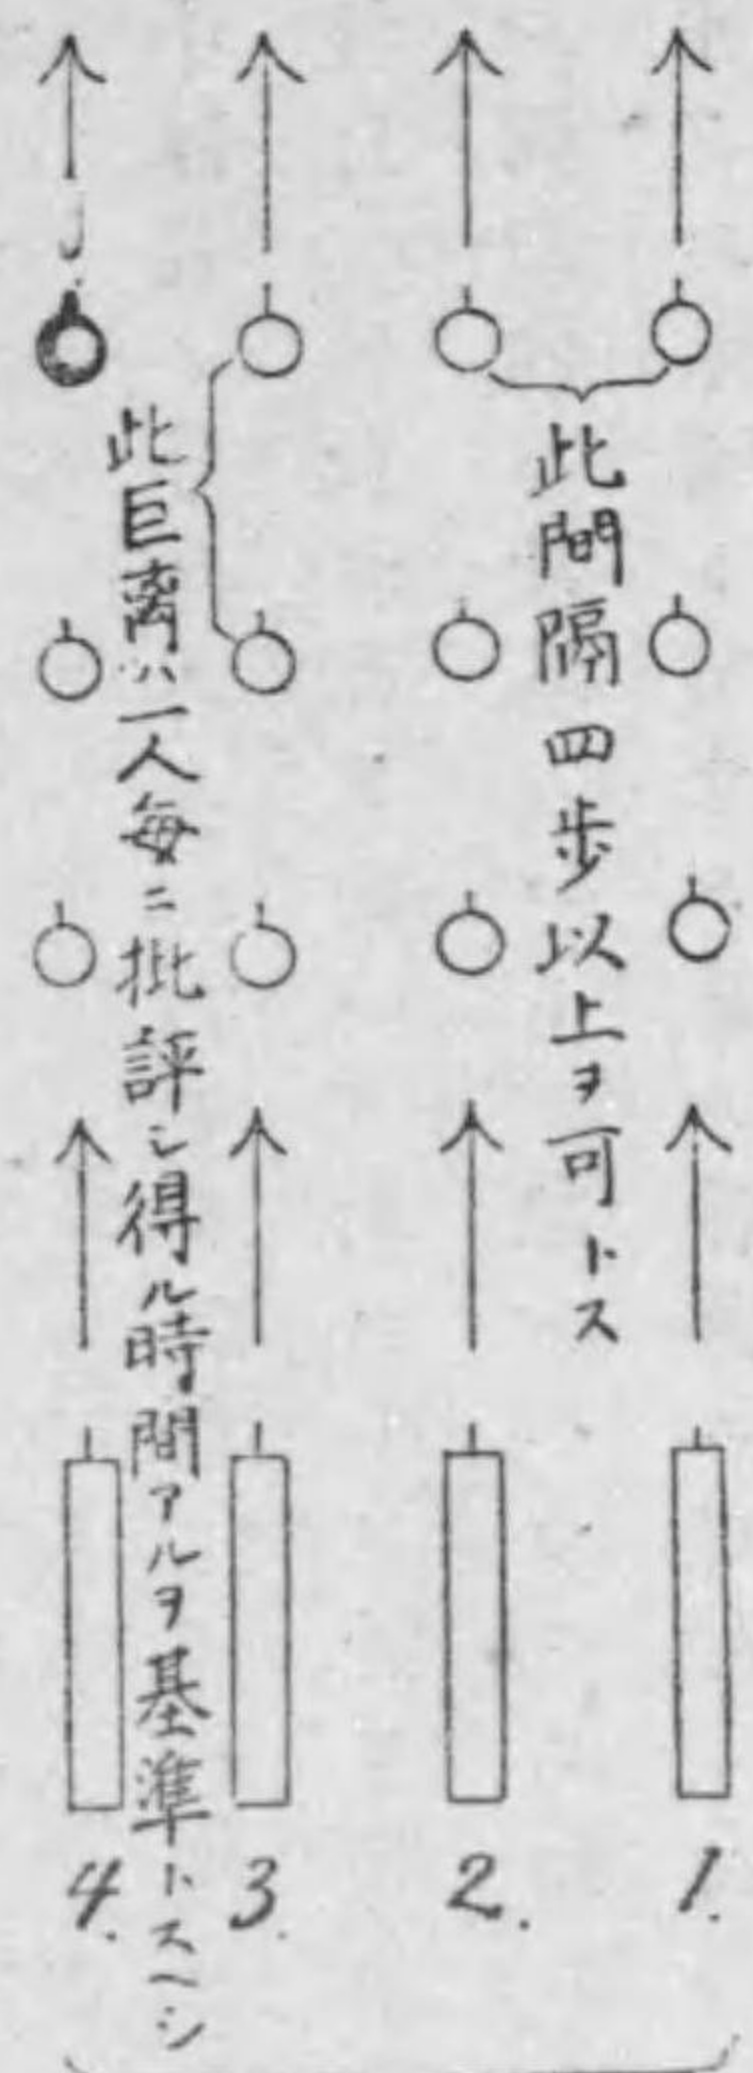 此間隔四歩以上ヲ可トス
此巨离ハ一人每ニ批評シ得ル時間アルヲ基準トスヘシ
1.
2.
3.
4.